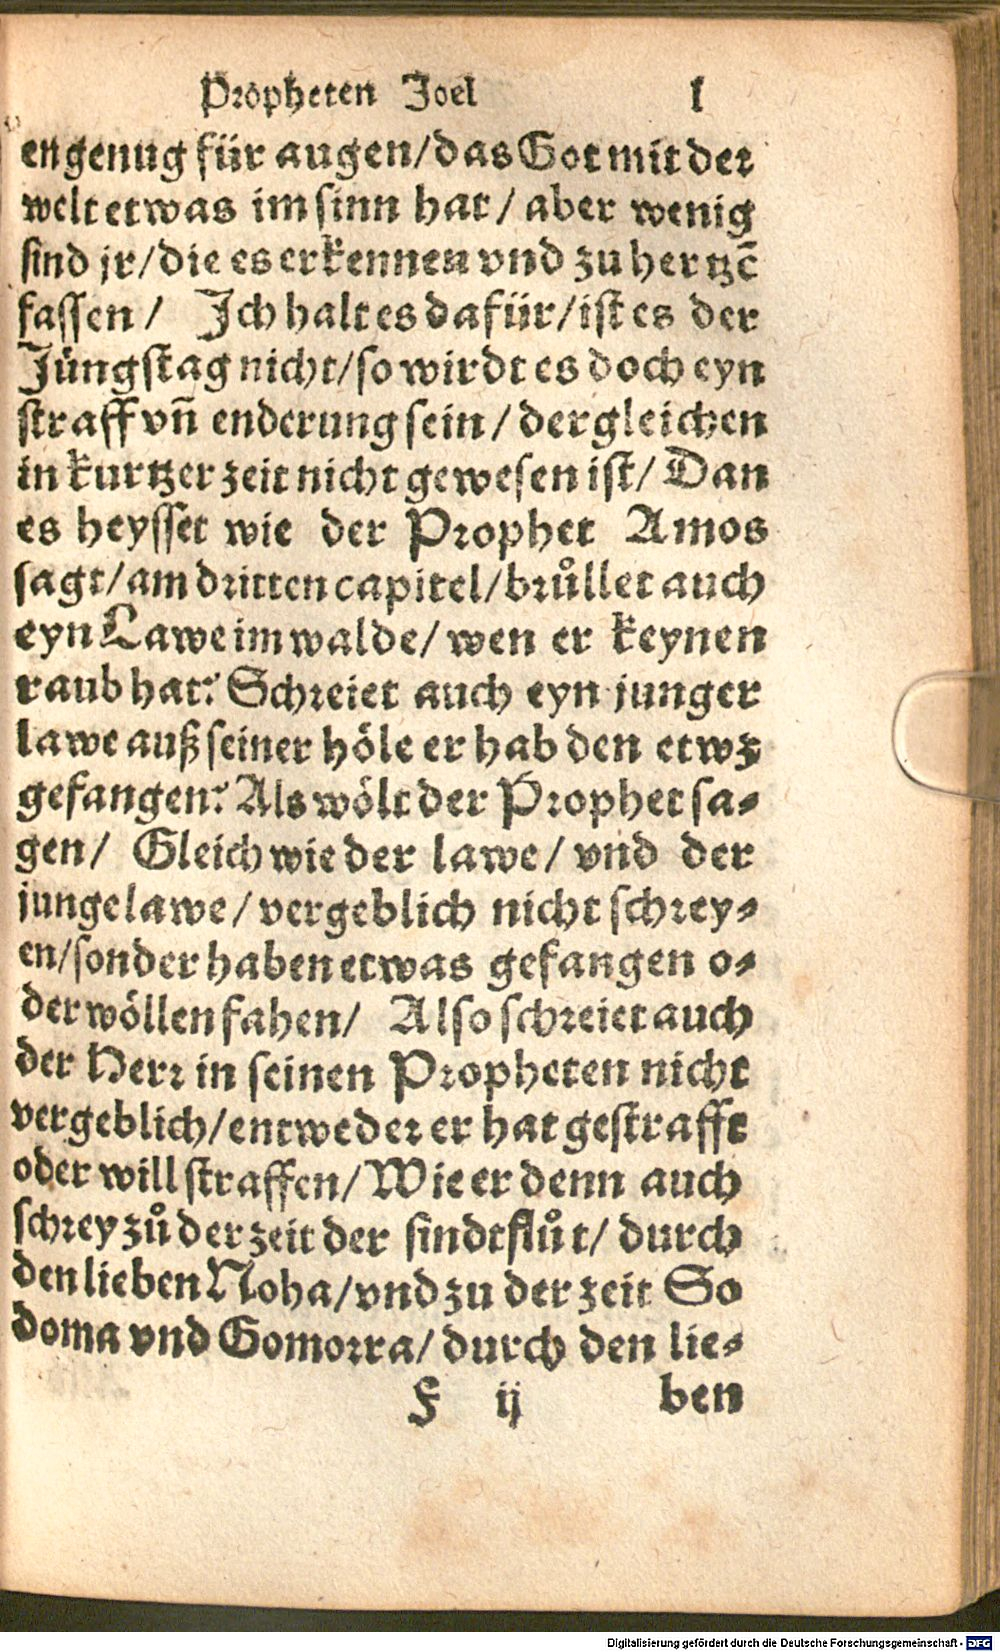 Propheten Joel l
en genug für augen/das Got mit der
welt etwas im sinn hat/ aber wenig
sind jr/die es erkennen vnd zu hertzē
fassen/ Ich halt es dafür/ist es der
Jüngstag nicht/so wirdt es doch eyn
straff vñ enderung sein/ dergleichen
in kurtzer zeit nicht gewesen ist/ Dan
es heysset wie der Prophet Amos
sagt/am dritten capitel/brůllet auch
eyn Lawe im walde/ wen er keynen
raub hat? Schreiet auch eyn junger
lawe auß seiner höle er hab den etwz
gefangen? Als wölt der Prophet sa-
gen/ Gleich wie der lawe/ vnd der
junge lawe/ vergeblich nicht schrey-
en/sonder haben etwas gefangen o-
der wöllen fahen/ Also schreiet auch
der Herr in seinen Propheten nicht
vergeblich/entweder er hat gestrafft
oder will straffen/Wie er denn auch
schrey zů der zeit der sindtflůt/ durch
den lieben Noha/vnd zu der zeit So
doma vnd Gomorra/ durch den lie-
F ij ben
Digitalisierung gefördert durch die Deutsche Forschungsgemeinschaft - DFG